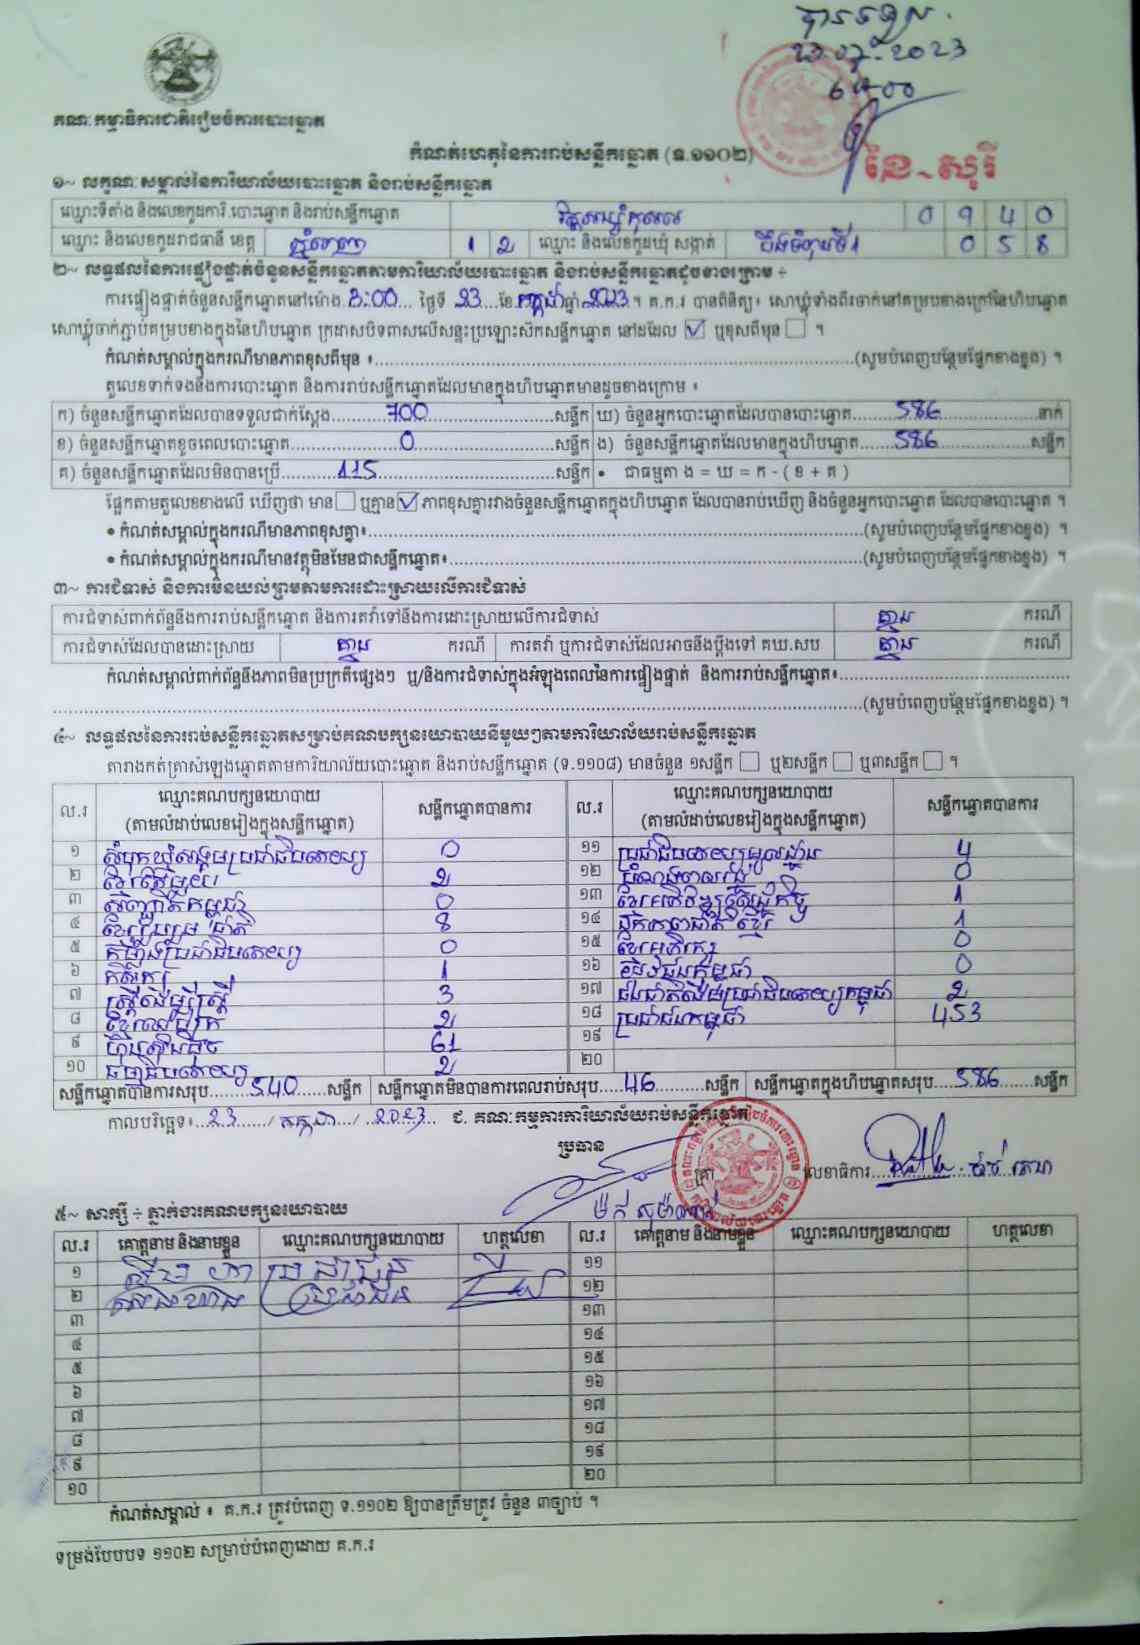 បានទទួល
23 កក្កដា 2023
6h00
នៃ~សុរី
គណៈកម្មាធិការជាតិរៀបចំការបោះឆ្នោត
កំណត់ហេតុនៃការរាប់សន្លឹកឆ្នោត (ទ.១១០២)
១~ លក្ខណៈសម្គាល់នៃការិយាល័យបោះឆ្នោត និងរាប់សន្លឹកឆ្នោត
ឈ្មោះទីតាំង និងលេខកូដការិ.បោះឆ្នោត និងរាប់សន្លឹកឆ្នោត 0 9 4 0
ឈ្មោះ និងលេខកូដរាជធានី ខេត្ត ភ្នំពេញ 1 2 ឈ្មោះ និងលេខកូដឃុំ សង្កាត់ 0 5 8
២~ លទ្ធផលនៃការផ្ទៀងផ្ទាត់ចំនួនសន្លឹកឆ្នោតតាមការិយាល័យបោះឆ្នោត និងរាប់សន្លឹកឆ្នោតដូចខាងក្រោម ÷
ការផ្ទៀងផ្ទាត់ចំនួនសន្លឹកឆ្នោតនៅម៉ោង 3:00 ថ្ងៃទី 23 ខែ កក្កដា ឆ្នាំ 2023 ។ គ.ក.រ បានពិនិត្យ៖ សោឃ្លុំទាំងពីរចាក់នៅគម្របខាងក្រៅនៃហិបឆ្នោត
សោឃ្លុំចាក់ភ្ជាប់គម្របខាងក្នុងនៃហិបឆ្នោត ក្រដាសបិទពាសលើសន្ទះប្រឡោះសឹកសន្លឹកឆ្នោត នៅដដែល ☑ ឬខុសពីមុន ☐ ។
កំណត់សម្គាល់ក្នុងករណីមានភាពខុសពីមុន ៖ (សូមបំពេញបន្ថែមផ្នែកខាងខ្នង) ។
តួលេខទាក់ទងនឹងការបោះឆ្នោត និងការរាប់សន្លឹកឆ្នោតដែលមានក្នុងហិបឆ្នោតមានដូចខាងក្រោម ៖
ក) ចំនួនសន្លឹកឆ្នោតដែលបានទទួលជាក់ស្តែង 700 សន្លឹក ឃ) ចំនួនអ្នកបោះឆ្នោតដែលបានបោះឆ្នោត 586 នាក់
ខ) ចំនួនសន្លឹកឆ្នោតខូចពេលបោះឆ្នោត 0 សន្លឹក ង) ចំនួនសន្លឹកឆ្នោតដែលមានក្នុងហិបឆ្នោត 586 សន្លឹក
គ) ចំនួនសន្លឹកឆ្នោតដែលមិនបានប្រើ 115 សន្លឹក • ជាធម្មតា ង = ឃ = ក - ( ខ + គ )
ផ្អែកតាមតួលេខខាងលើ ឃើញថា មាន ☐ ឬគ្មាន ☑ ភាពខុសគ្នារវាងចំនួនសន្លឹកឆ្នោតក្នុងហិបឆ្នោត ដែលបានរាប់ឃើញ និងចំនួនអ្នកបោះឆ្នោត ដែលបានបោះឆ្នោត ។
• កំណត់សម្គាល់ក្នុងករណីមានភាពខុសគ្នា៖ (សូមបំពេញបន្ថែមផ្នែកខាងខ្នង) ។
• កំណត់សម្គាល់ក្នុងករណីមានវត្ថុមិនមែនជាសន្លឹកឆ្នោត៖ (សូមបំពេញបន្ថែមផ្នែកខាងខ្នង) ។
៣~ ការជំទាស់ និងការមិនយល់ព្រមតាមការដោះស្រាយលើការជំទាស់
ការជំទាស់ពាក់ព័ន្ធនឹងការរាប់សន្លឹកឆ្នោត និងការតវ៉ាទៅនឹងការដោះស្រាយលើការជំទាស់ គ្មាន ករណី
ការជំទាស់ដែលបានដោះស្រាយ គ្មាន ករណី ការតវ៉ា ឬការជំទាស់ដែលអាចនឹងប្តឹងទៅ គឃ.សប គ្មាន ករណី
កំណត់សម្គាល់ពាក់ព័ន្ធនឹងភាពមិនប្រក្រតីផ្សេងៗ ឬ/និងការជំទាស់ក្នុងអំឡុងពេលនៃការផ្ទៀងផ្ទាត់ និងការរាប់សន្លឹកឆ្នោត៖
(សូមបំពេញបន្ថែមផ្នែកខាងខ្នង) ។
៤~ លទ្ធផលនៃការរាប់សន្លឹកឆ្នោតសម្រាប់គណបក្សនយោបាយនីមួយៗតាមការិយាល័យរាប់សន្លឹកឆ្នោត
តារាងកត់ត្រាសំឡេងឆ្នោតតាមការិយាល័យបោះឆ្នោត និងរាប់សន្លឹកឆ្នោត (ទ.១១០៨) មានចំនួន ១សន្លឹក ☐ ឬ២សន្លឹក ☐ ឬ៣សន្លឹក ☐ ។
ល.រ ឈ្មោះគណបក្សនយោបាយ (តាមលំដាប់លេខរៀងក្នុងសន្លឹកឆ្នោត) សន្លឹកឆ្នោតបានការ ល.រ ឈ្មោះគណបក្សនយោបាយ (តាមលំដាប់លេខរៀងក្នុងសន្លឹកឆ្នោត) សន្លឹកឆ្នោតបានការ
១ សំបុកឃ្មុំសង្គមប្រជាធិបតេយ្យ 0 ១១ ប្រជាធិបតេយ្យមូលដ្ឋាន 4
២ ខ្មែរតែមួយ 2 ១២ 0
៣ សញ្ជាតិកម្ពុជា 0 ១៣ ខ្មែរអភិវឌ្ឍន៍សេដ្ឋកិច្ច 1
៤ ខ្មែររួបរួមជាតិ 8 ១៤ ឯកភាពជាតិខ្មែរ 1
៥ កម្លាំងប្រជាធិបតេយ្យ 0 ១៥ ខ្មែរអភិរក្ស 0
៦ កសិករ 1 ១៦ 0
៧ ស្ត្រីដើម្បីស្ត្រី 3 ១៧ យុវជនកម្ពុជា 2
៨ 2 ១៨ ប្រជាជនកម្ពុជា 453
៩ ហ៊្វុនស៊ិនប៉ិច 61 ១៩
១០ ធម្មាធិបតេយ្យ 2 ២០
សន្លឹកឆ្នោតបានការសរុប 540 សន្លឹក សន្លឹកឆ្នោតមិនបានការពេលរាប់សរុប 46 សន្លឹក សន្លឹកឆ្នោតក្នុងហិបឆ្នោតសរុប 586 សន្លឹក
កាលបរិច្ឆេទ៖ 23 / កក្កដា / 2023 ជ. គណៈកម្មការការិយាល័យរាប់សន្លឹកឆ្នោត
ប្រធាន
ត្រា លេខាធិការ
៥~ សាក្សី ÷ ភ្នាក់ងារគណបក្សនយោបាយ
ល.រ គោត្តនាម និងនាមខ្លួន ឈ្មោះគណបក្សនយោបាយ ហត្ថលេខា ល.រ គោត្តនាម និងនាមខ្លួន ឈ្មោះគណបក្សនយោបាយ ហត្ថលេខា
១ ប្រជាជន ១១
២ ប្រជាជន ១២
៣ ១៣
៤ ១៤
៥ ១៥
៦ ១៦
៧ ១៧
៨ ១៨
៩ ១៩
១០ ២០
កំណត់សម្គាល់ ៖ គ.ក.រ ត្រូវបំពេញ ទ.១១០២ ឱ្យបានត្រឹមត្រូវ ចំនួន ៣ច្បាប់ ។
ទម្រង់បែបបទ ១១០២ សម្រាប់បំពេញដោយ គ.ក.រ